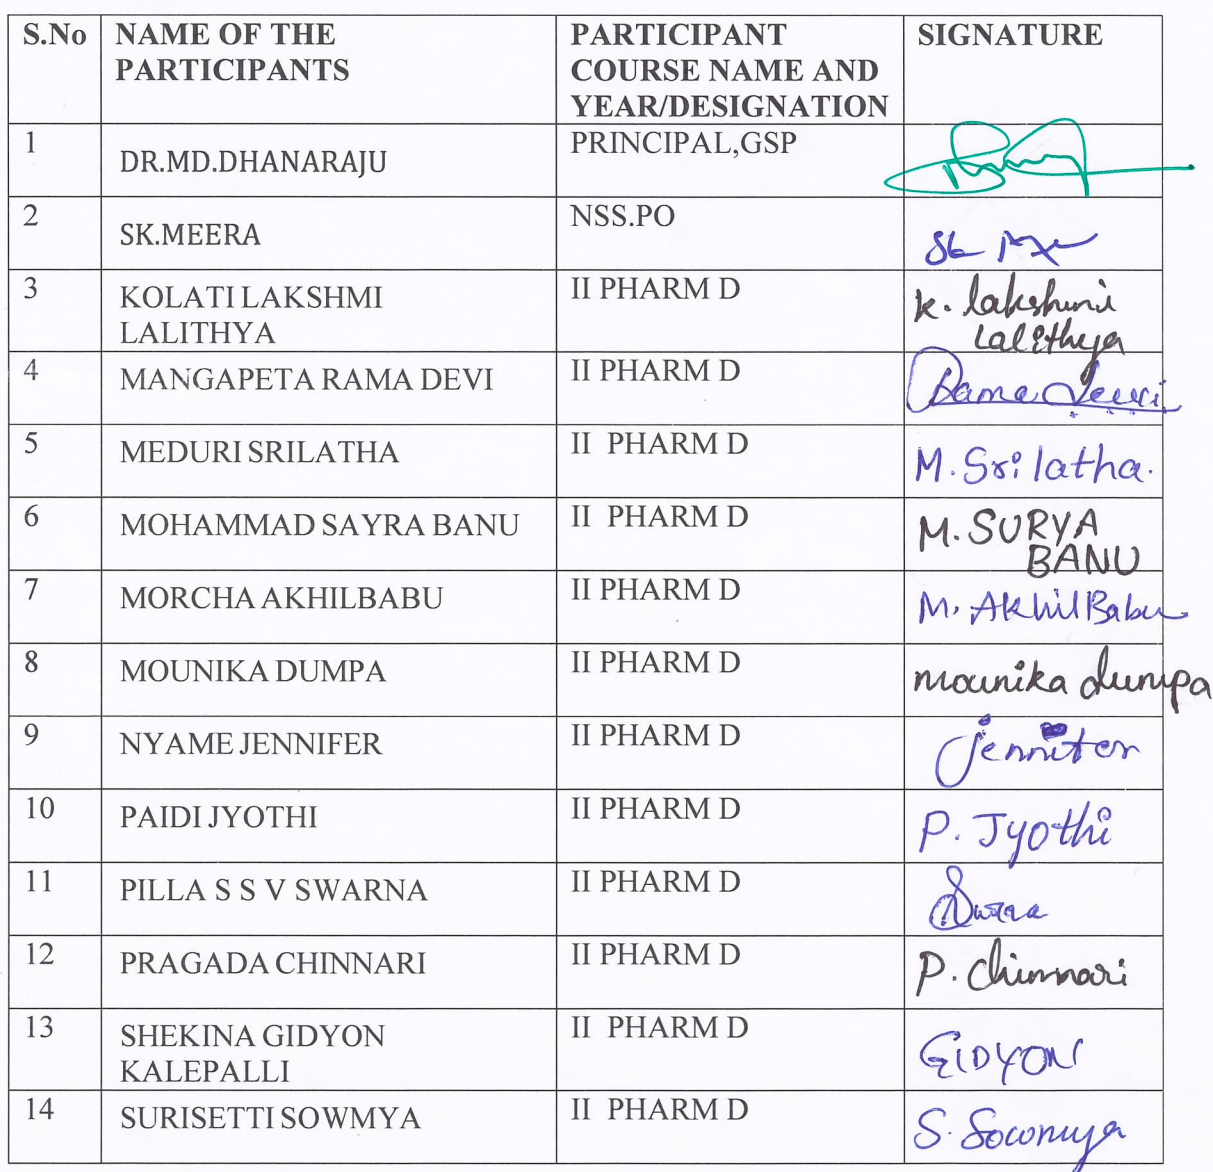 S.No NAME OF THE PARTICIPANTS PARTICIPANT COURSE NAME AND YEAR/DESIGNATION SIGNATURE
1 DR.MD.DHANARAJU PRINCIPAL,GSP
2 SK.MEERA NSS.PO
3 KOLATI LAKSHMI LALITHYA II PHARM D k. lakshmi Lalithya
4 MANGAPETA RAMA DEVI II PHARM D Rama Devi
5 MEDURI SRILATHA II PHARM D M. Srilatha.
6 MOHAMMAD SAYRA BANU II PHARM D M. SURYA BANU
7 MORCHA AKHILBABU II PHARM D M. AkhilBabu
8 MOUNIKA DUMPA II PHARM D mounika dumpa
9 NYAME JENNIFER II PHARM D jennifer
10 PAIDI JYOTHI II PHARM D P. Jyothi
11 PILLA S S V SWARNA II PHARM D
12 PRAGADA CHINNARI II PHARM D P. Chinnari
13 SHEKINA GIDYON KALEPALLI II PHARM D GIDYON
14 SURISETTI SOWMYA II PHARM D S. Sowmya